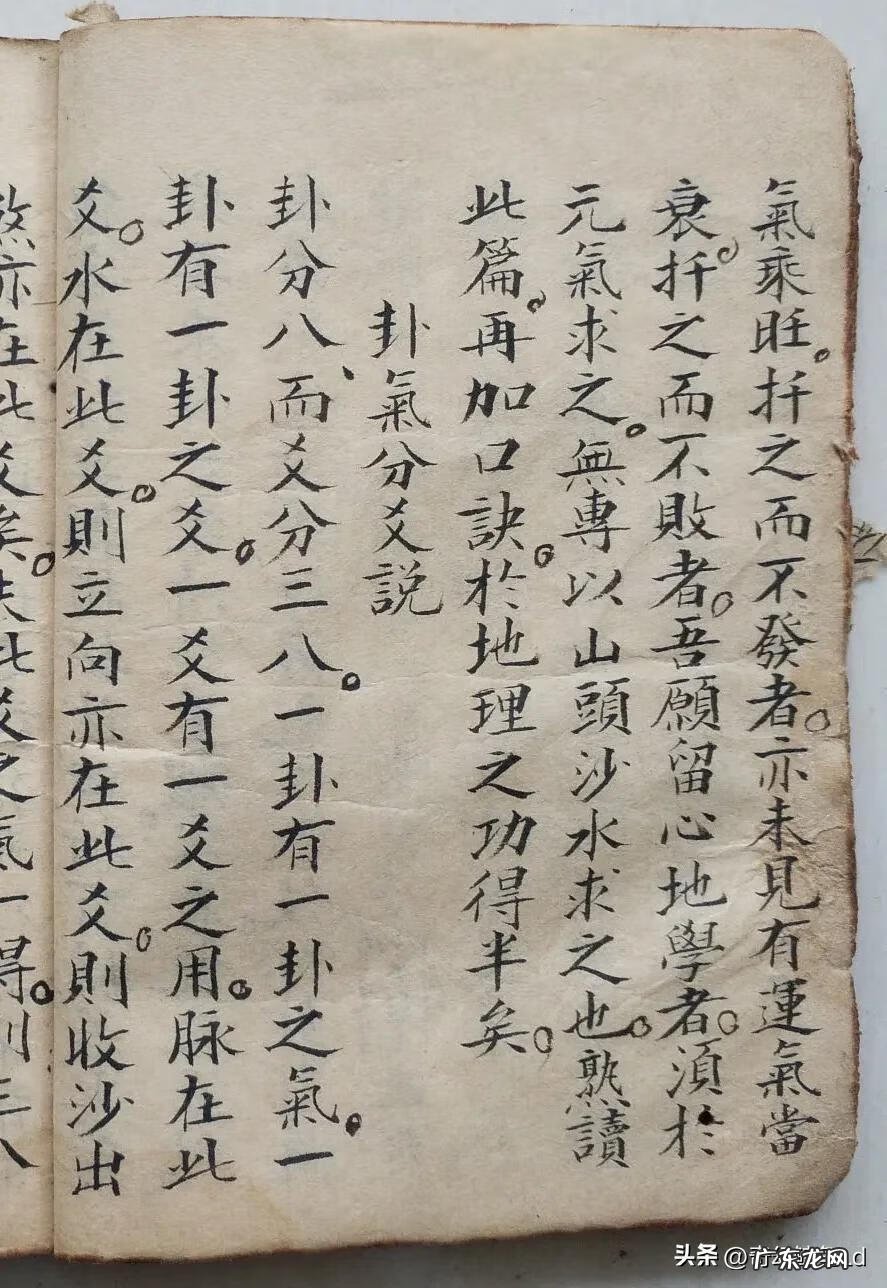 氣乘旺。扦之而不發者。亦未見有運氣當
衰。扦之而不敗者。吾願留心地學者。須於
元氣求之。無專以山頭沙水求之也。熟讀
此篇。再加口訣。於地理之功得半矣。
卦氣分爻說
卦分八、而爻分三八。一卦有一卦之氣。一
卦有一卦之爻。一爻有一爻之用。脉在此
爻。水在此爻。則立向亦在此爻。則收沙出
煞亦在此爻矣。失此爻之氣一得。則三八
头条 @
广东龙网